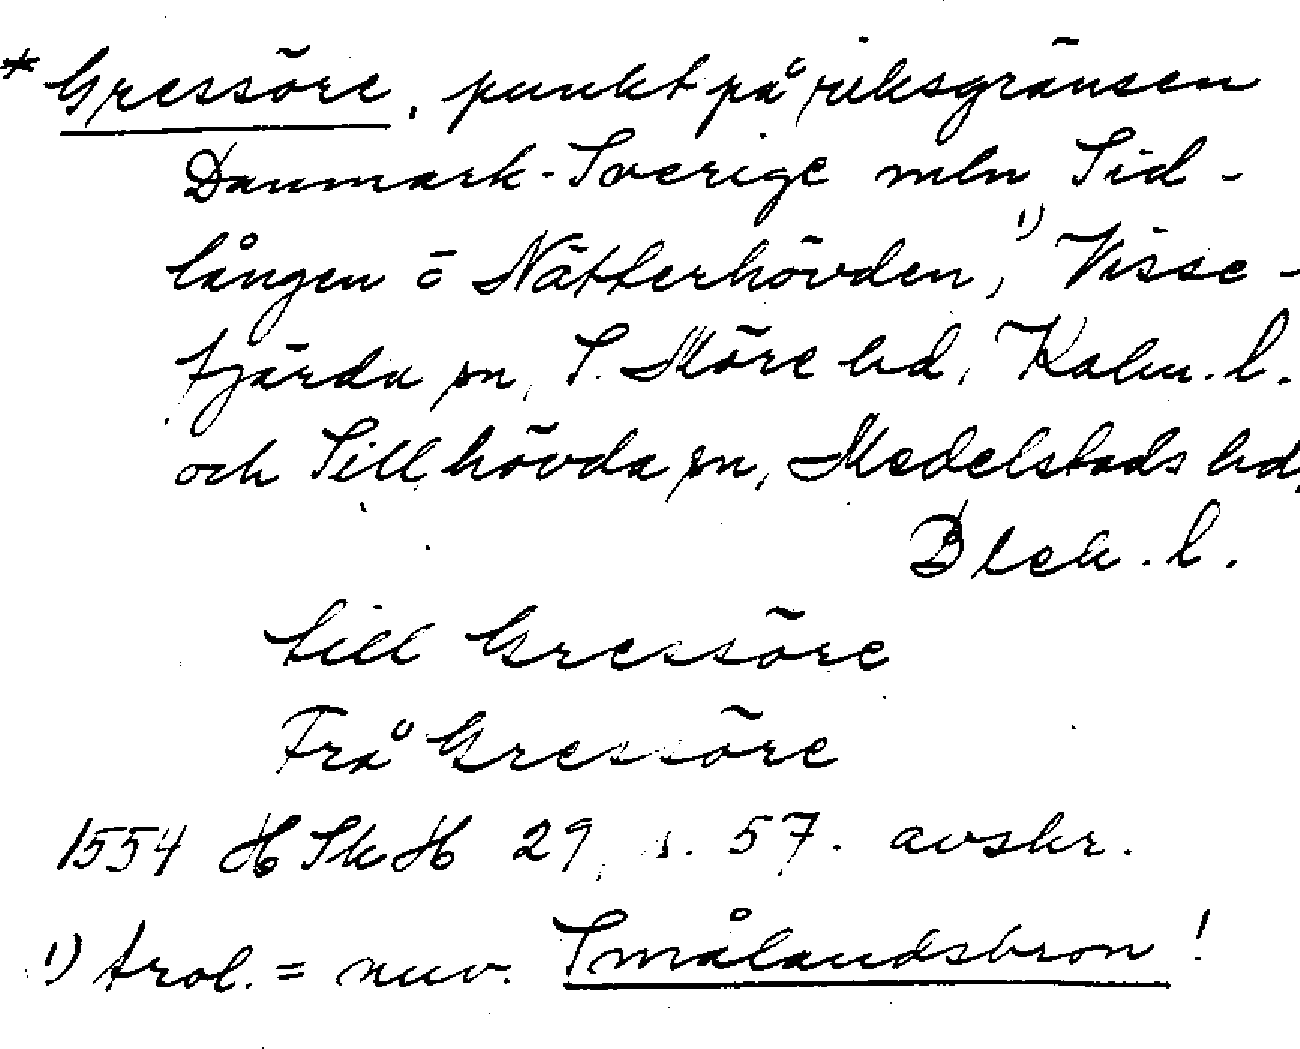 * Gressöre, punkt på riksgränsen
Danmark-Sverige mln Sid-
lången o Nätterhövden,¹⁾ Visse-
fjärda sn, S. Möre hd, Kalm. l.
och Sillhövda sn, Medelstads hd,
Blek. l.
till Gressöre
Frå Gressöre
1554 HSkH 29, s. 57. avskr.
¹⁾ trol. = nuv. Smålandsbron!